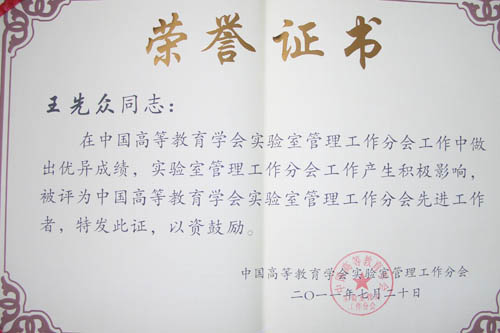 荣誉证书
王先众同志：
在中国高等教育学会实验室管理工作分会工作中做
出优异成绩，实验室管理工作分会工作产生积极影响，
被评为中国高等教育学会实验室管理工作分会先进工作
者，特发此证，以资鼓励。
中国高等教育学会实验室管理工作分会
二〇一一年七月二十日